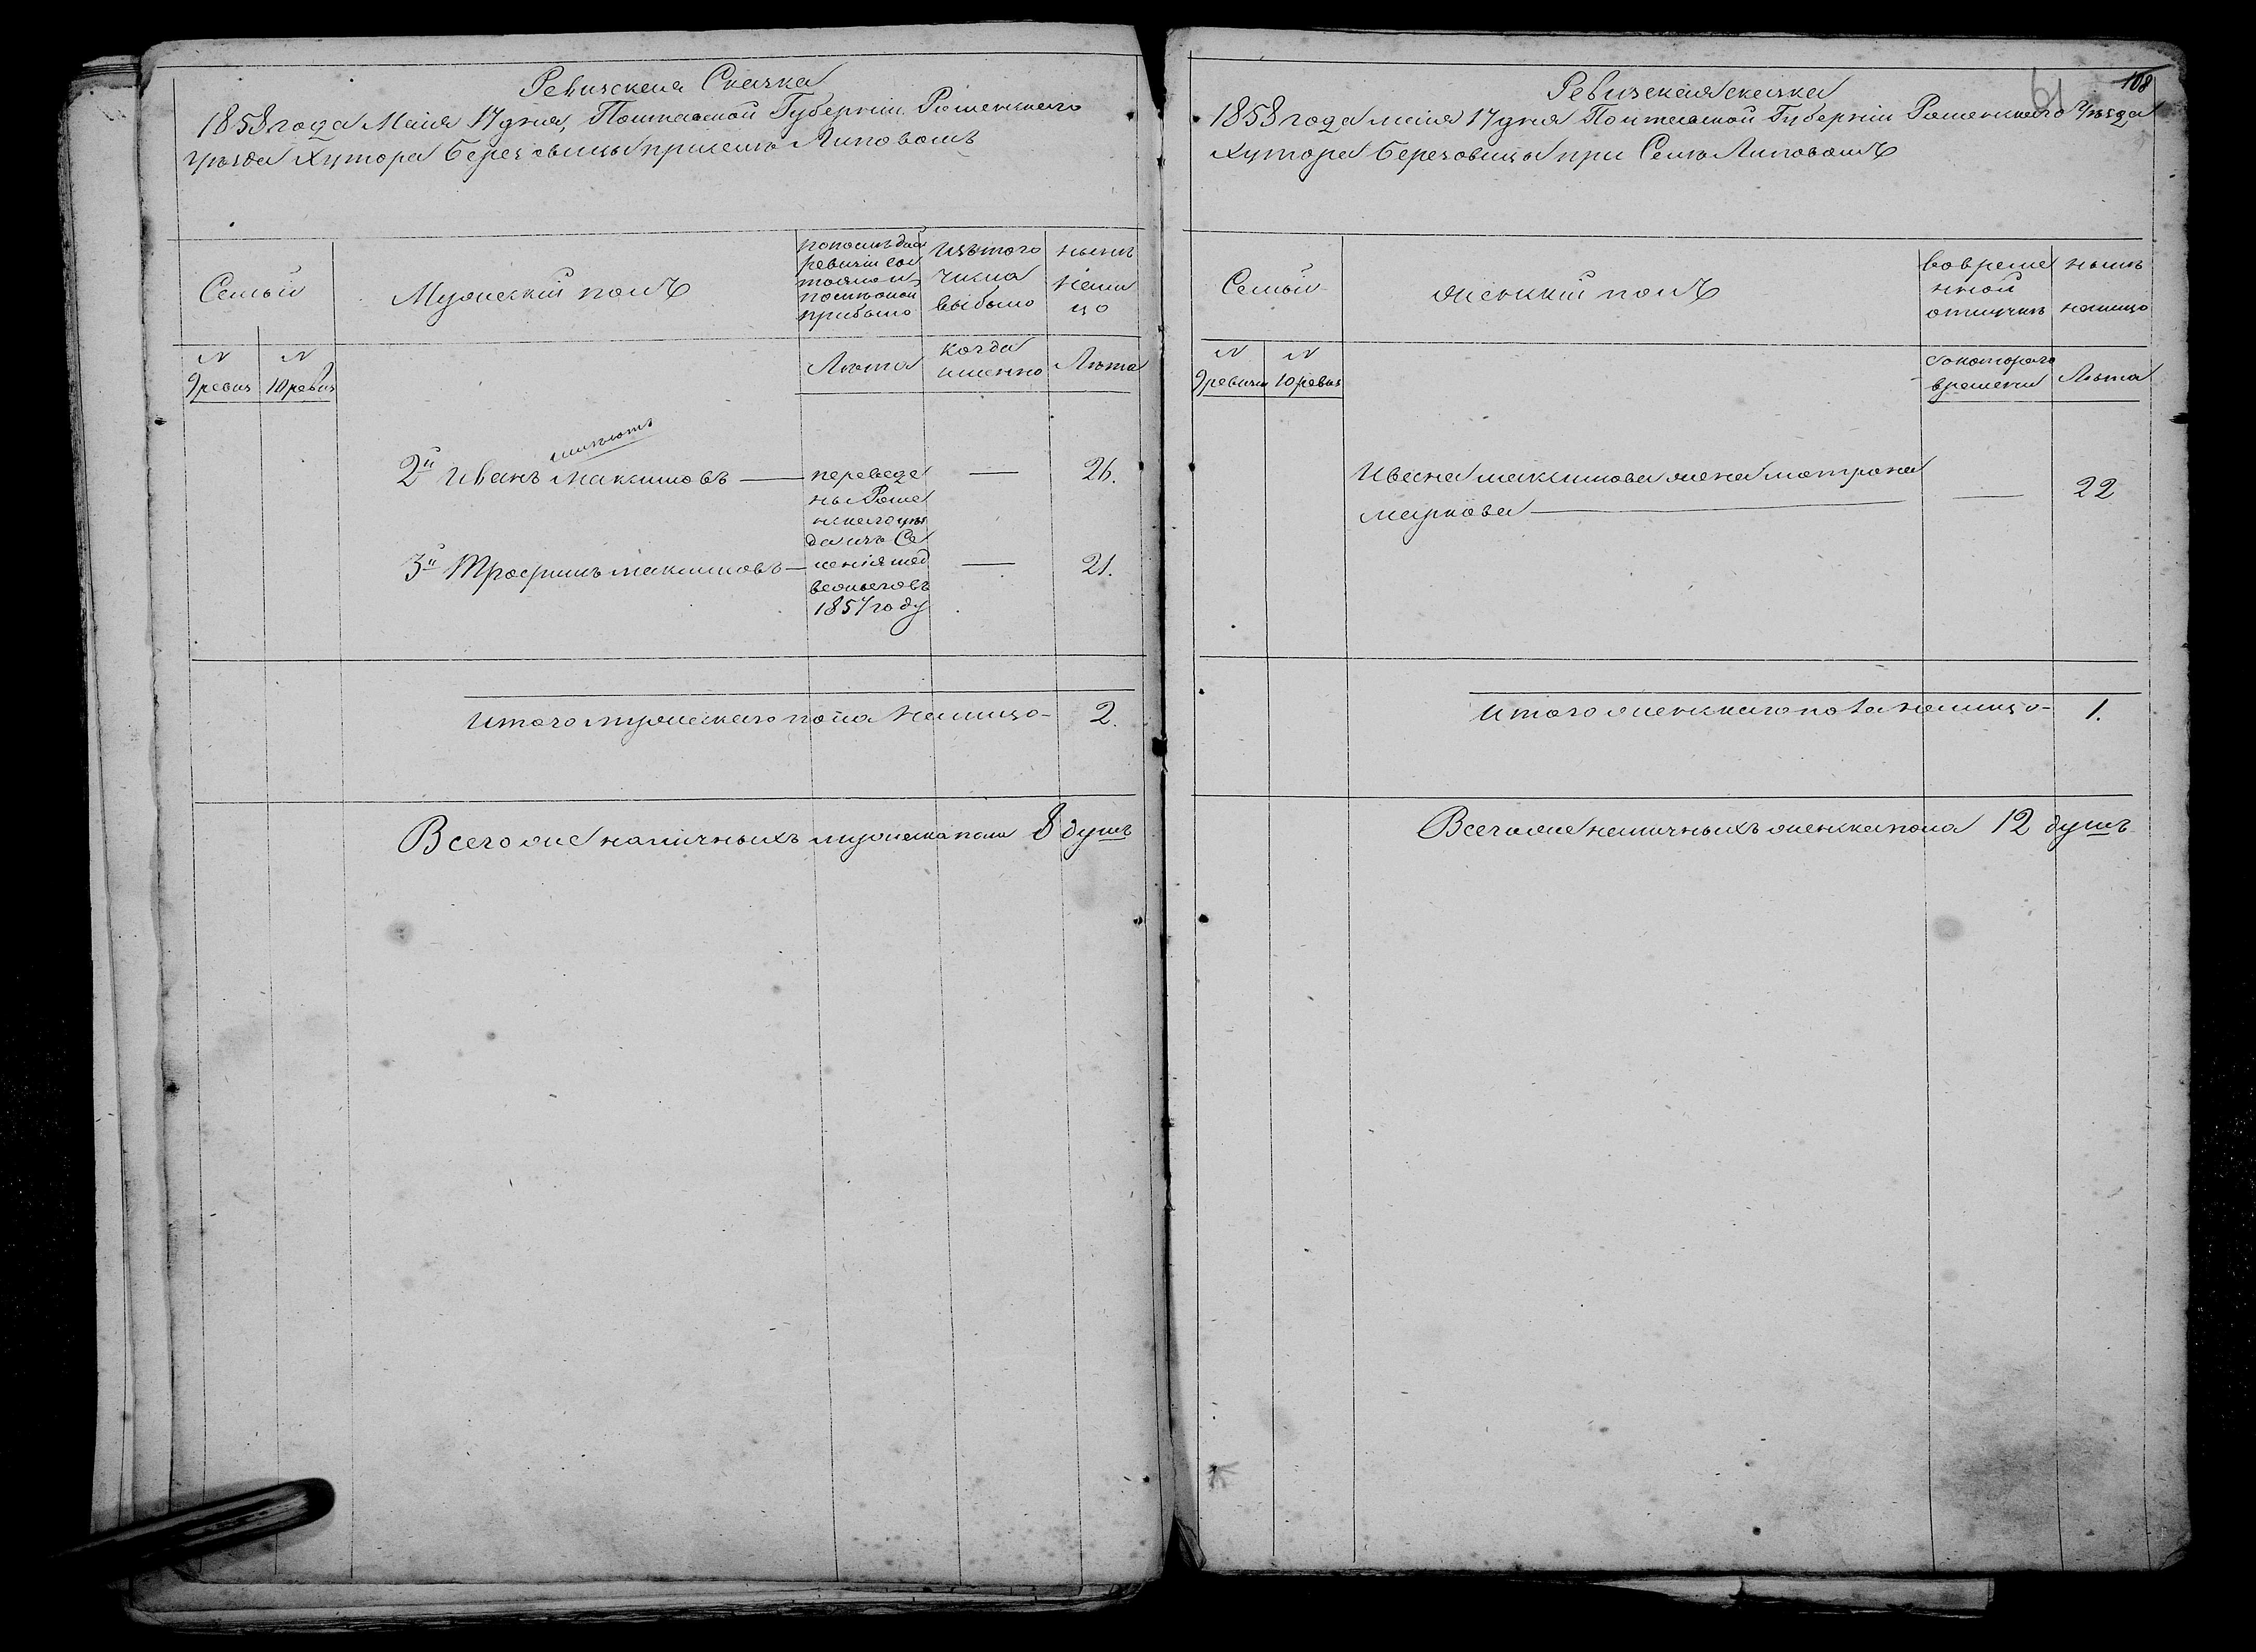 Ревизская Сказка
1858 года Маія 17 дня, Полтавской Губерніи Роменскаго
уѣзда Хутора Березовицы при селѣ Липовомъ
Семьи
Мужескій полъ
по послѣдней
ревизіи со
стояло и
послѣ оной
прибыло
Изъ того
числа
выбыло
нынѣ
нали
цо
N
9 ревиз
N
10 ревиз
Лѣта
когда
именно
Лѣта
2й Иванъ Максимовъ —
переведе
ны Роме
нскаго уѣз
да изъ Се
ленія
1857 году
—
26.
3й Трофимъ Максимовъ —
—
21.
Итого мужескаго пола налицо - 2.
Всего же наличныхъ мужеска пола 8 душъ
108
Ревизская сказка
1858 года маія 17 дня Полтавской Губерніи Роменскаго Уѣзда
Хутора Березовицы при Селѣ Липовомъ
Семьи
женскій полъ
во време
нной
отлучкѣ
нынѣ
налицо
N
9 ревизіи
N
10 ревиз
съ котораго
времени
Лѣта
Ивана максимова жена мотрона
маркова —
—
22
Итого женскаго пола налицо - 1.
Всего же наличныхъ женска пола 12 душъ